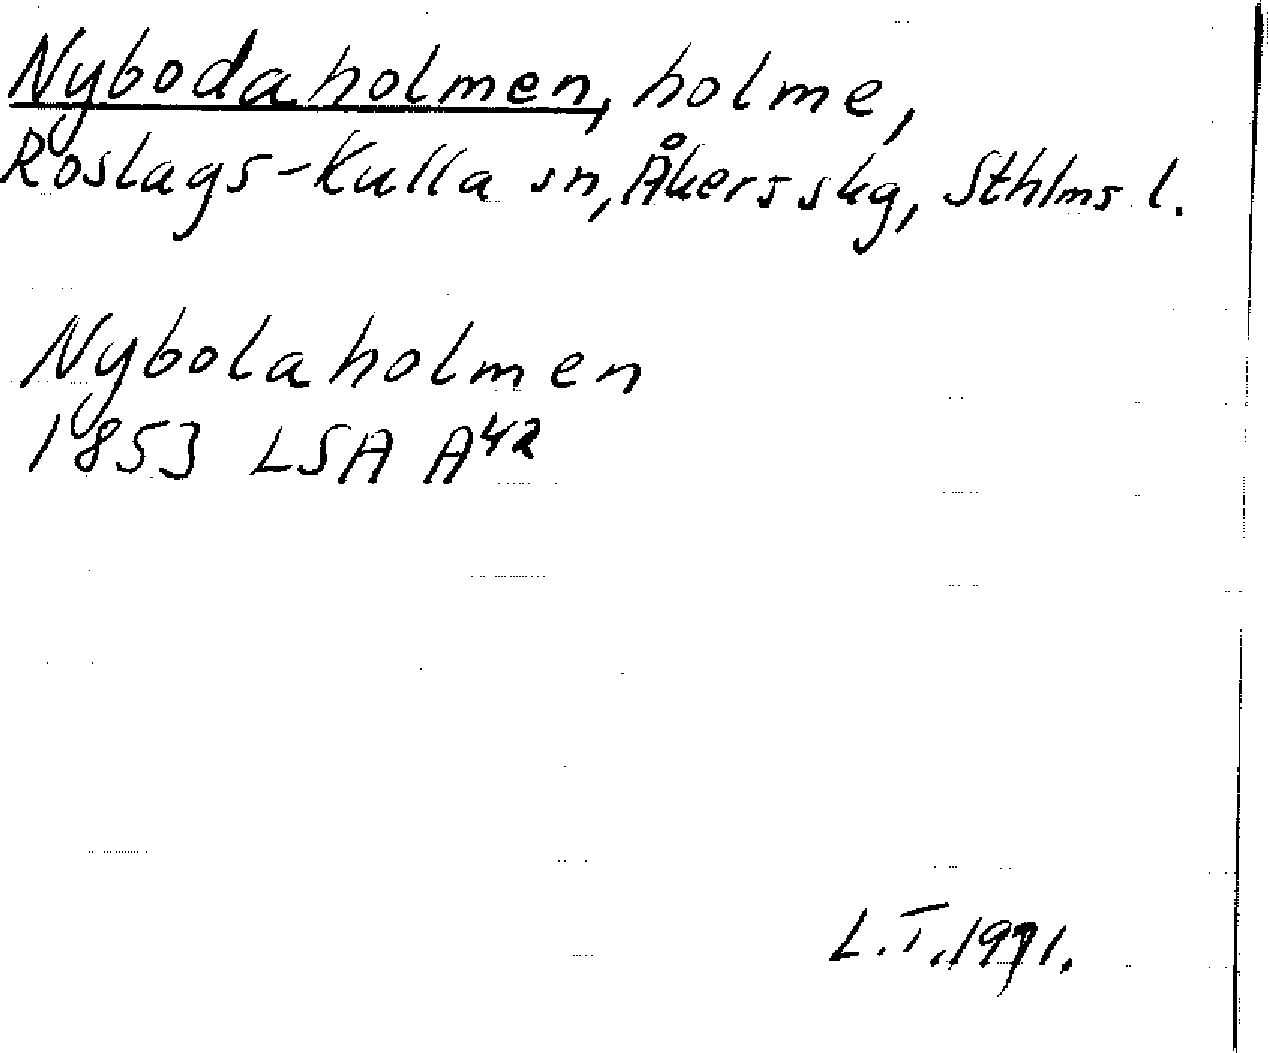 Nybodaholmen, holme,
Roslags-Kulla sn, Åkers skg, Sthlms l.
Nybolaholmen
1853 LSA A42
L.T. 1971.